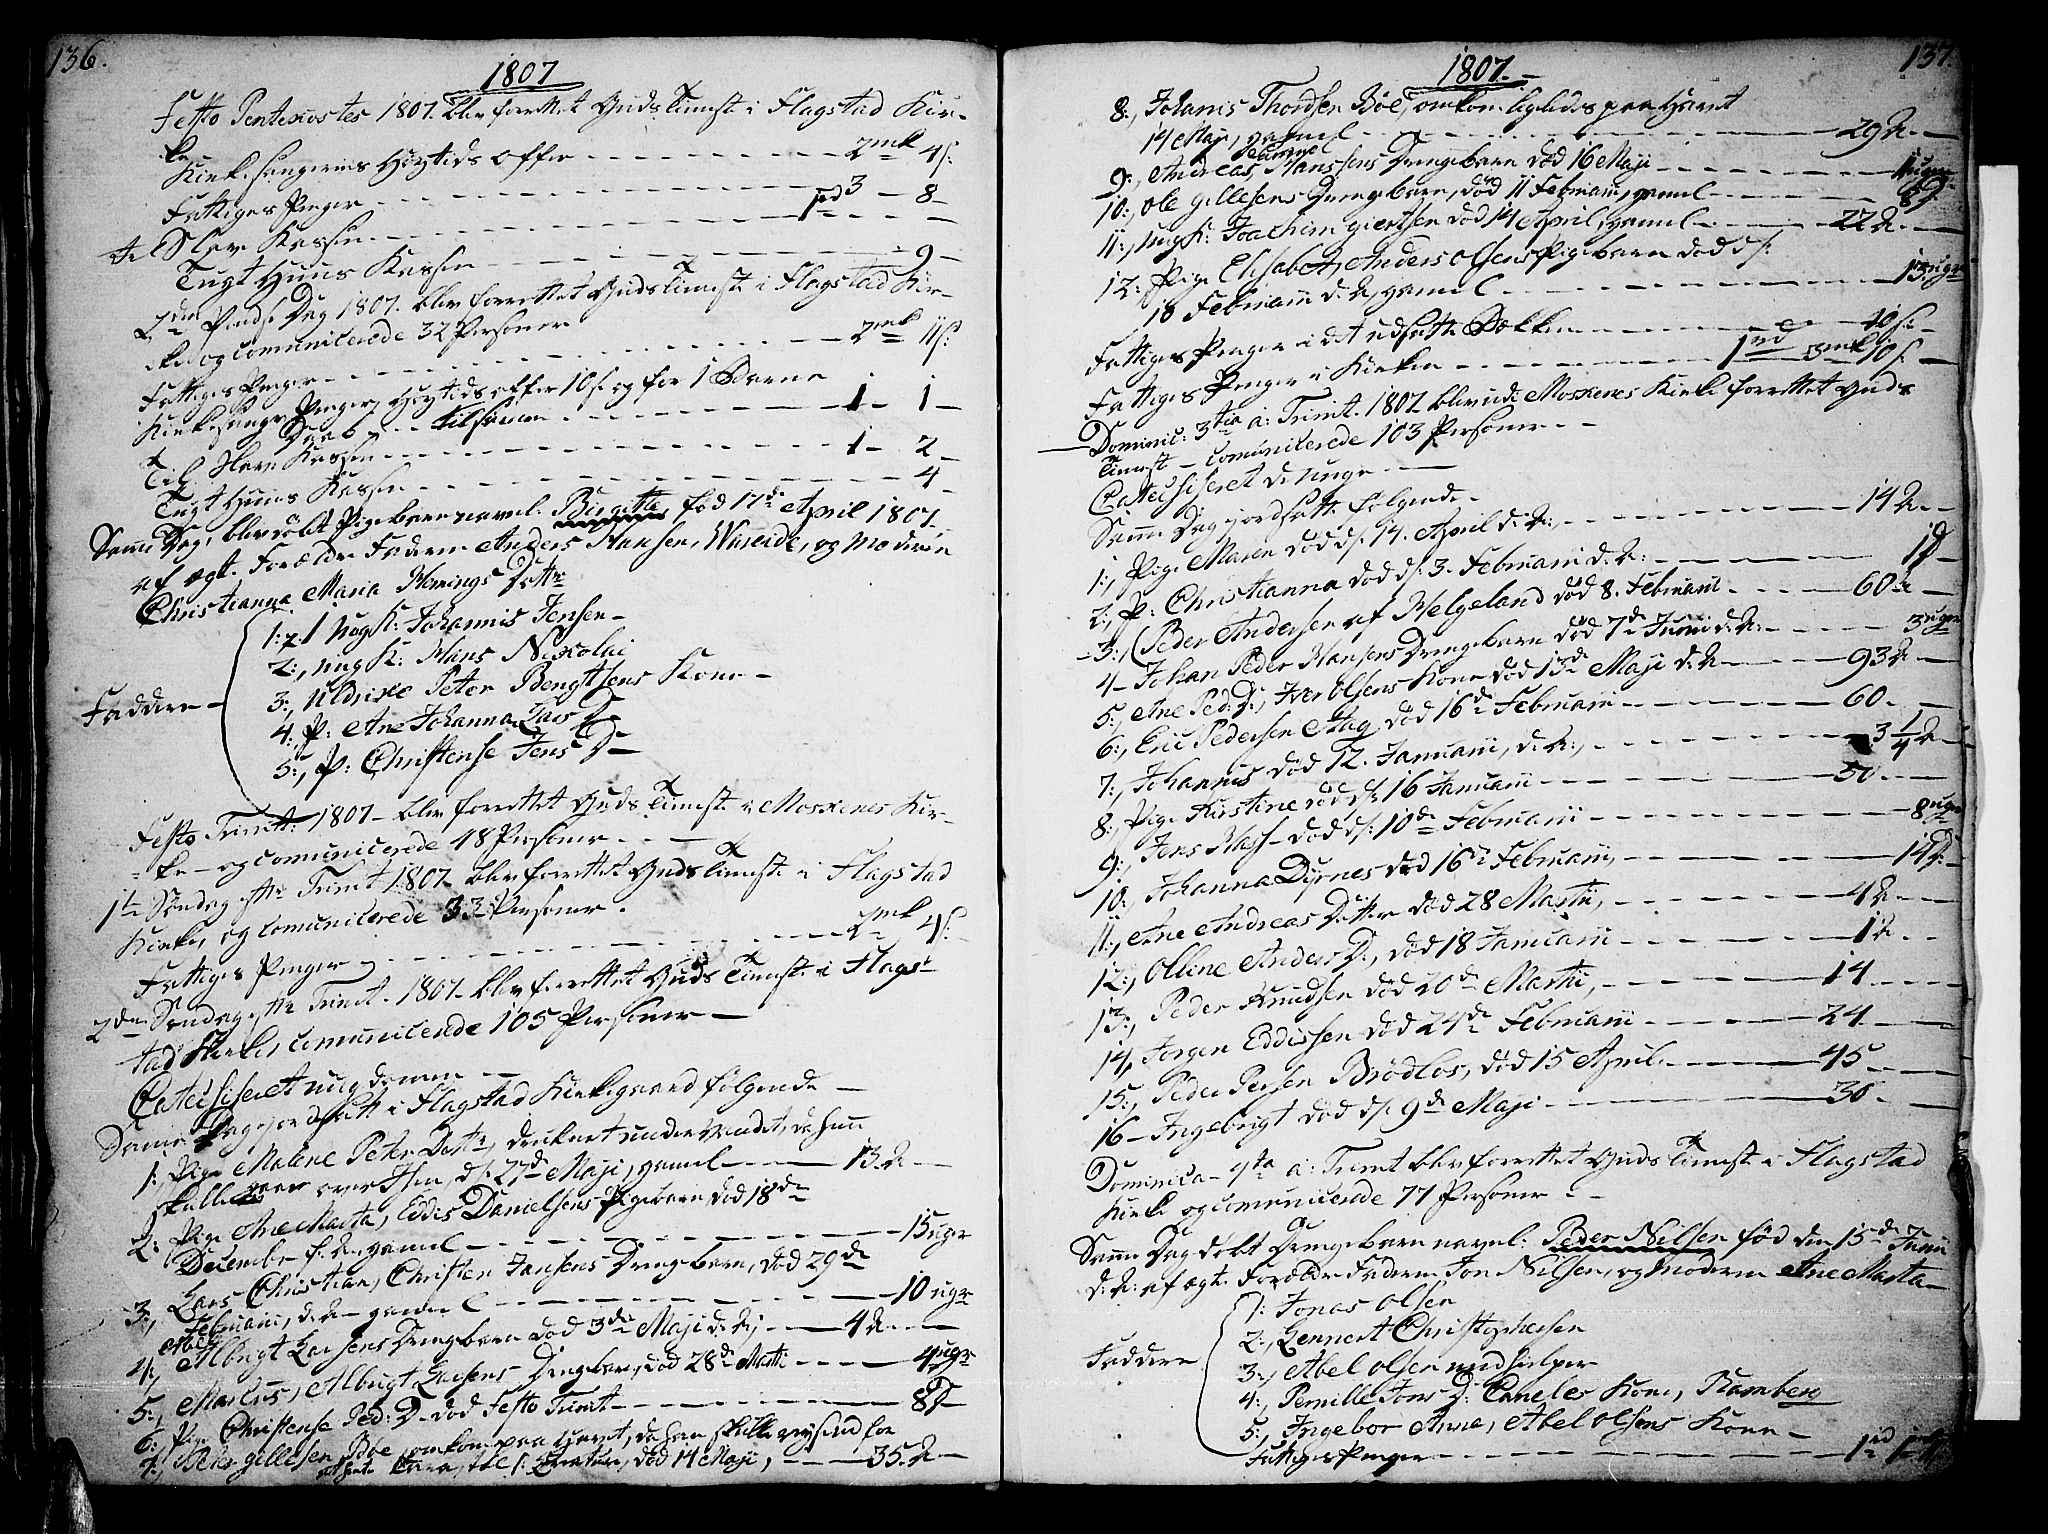 136.
1807
Festo Pentecostes 1807. blev forrettet Guds Tienest i Flagstad Kir-
ke
Kirkesangerens Høytids offer 2 mk 4 s:
Fattiges Penger 3 - 8 -
Slave Kassen 1 rd
Tugt Huus Kassen 9 -
2den Pindse Dag 1807. blev forrettet Guds Tienest i Flagstad Kir-
ke og comunicerede 32 Personer
Fattiges Penger 2 mk 11 s:
Kirkesanger Penger, Høytids offer 10 s. og for 1 Barne
Daab - tilsamen 1 - 1 -
Til Slave Kassen 1 - 2 -
Tugt Huus Kassen 4 -
Samme Dag, blev døbt Pigebarn navnl. Birgitte, fød 17de April 1807
af ægt. Forældre Faderen Anders Hansen, og Moderen
Christianna Maria Hemings Dotter
1:, ung K: Johannis Jensen -
2:, ung K: Hans Nikolai
3:, Uldrike Peter Bengtsens Kone -
4:, P: Ane Johanna Lars D -
5:, P: Christense Jens D -
Faddere -
Festo Trinit: 1807 - blev forrettet Guds Tienest i Moskenes Kir-
ke - og comunicerede 48 Personer
1te Søndag efter Trinit 1807. blev forrettet Guds Tienest i Flagstad
Kirke, og comunicerede 33 Personer.
Fattiges Penger 2 mk 4 s:
2den Søndag efter Trinit. 1807 - blev forrettet Guds Tienest i Flags-
tad Kirke, comunicerede 105 Personer -
Catechiseret ungdommen -
Samme Dag jordsatt i Flagstad Kirkegaard følgende -
1: Pige Malene Peter Dotter, druknet under vandet, da hun
skulle over Isen, d: 27de Maji, gamel 13 A -
2: Pige Ane Marta, Eddis Danielsens Pigebarn død 18de
December f. A. gamel 15 ugr
3:, Lars Christian, Christen Jansens Drengebarn, død 29de
Februarii, d: A: gamel 10 ugr
4:, Albrigt Larsens Drengebarn død 3de Maji d: A; 4 A -
5:, Marcus, Albrigt Larsens Drengebarn, død 28de Marti 4 ugr
6:, Pige Christense Ped: D - død Festo Trinit - 8 D -
7:, Gillesen Bøe, omkom paa Havet, da han skulle for
død 14 Maji, 35 A -
137.
1807. -
8:, Johanis Thordsen Bøe, omkom ligeledes paa Havet
14 Maji, gamel 29 A -
9:, Andreas Hanssens Drengebarn død 16 Maji 11 ugr
10:, Ole Gillesens Drengebarn, død 11 Februarii, gamel 8 D
11:, ung K: Joachim Giertsen død 14 April, gamel 22 A -
12:, Pige Elisabet, Anders Olsens Pigebarn død d:
18 Februarii d: A, gamel 13 ugr
Fattiges Penger i det udsatte Bækken 10 s. -
Fattiges Penger i Kirken 1 rd 3 mk 10 s. -
Dominic: 3tia a: Trinit. 1807 blev udi Moskenes Kirke forrettet Guds
Tienest - comunicerede 103 Personer -
Catechiseret de unge -
Samme Dag jordsatte følgende -
1:, Pige Maren død d: 14. April d: A:, 14 A -
2:, P: Christianna død d: 3. Februarii d: A: 1 D -
3:, Peder Andersen af Helgeland død 8. Februarii 60 A -
4 - Johan Peder Hansens Drengebarn død 7de Junii d: A: 3 ugr
5:, Ane Ped: D:, Iver Olsens Kone død 13de Maji d: A 93 A -
6:, Eric Pedersen død 16de Februarii 60 -
7:, Johannis død 12. Januarii, d: A:, 3 1/4 A -
8:, Pige Kirstine død d: 16 Januarii 50 -
9:, Jens død d: 10de Februarii 8 ugr
10:, Johanna Dyrnes død 16de Februarii, 14 D -
11:, Ane Andreas Dotter død 28 Martii, 4 A -
12:, Olline Anders D:, død 18 Januarii 1 A -
13:, Peder Knudsen død 20de Martii, 14 -
14, Jørgen Eddissen død 24de Februarii 24 -
15:, Peder Persen Brødløs, død 15 April 45 -
16 - Ingebrigt død d: 9de Maji 30 -
Dominica - 4ta a: Trinit blev forrettet Guds Tienest i Flagstad
Kirke og comunicerede 77 Personer -
Samme Dag døbt Drengebarn navnl: Peder Nilsen fød den 15de Junii
d: A: af ægte Forældre Faderen Jon Nilsen, og Moderen Ane Marta -
1: Jonas Olsen
2:, Lennert Christophersen
3:, Abel Olsen medhielper
4:, Pernille Jons D: Kone, Ramberg
5:, Ingebor Anna, Abel Olsens Kone -
Faddere
Fattiges Penger 1 rd